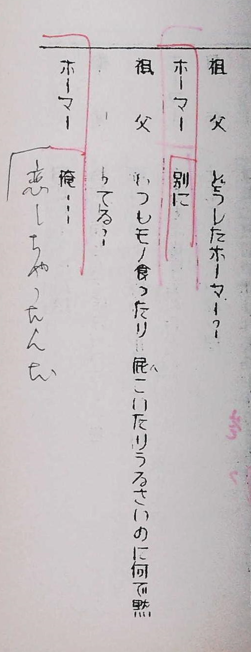 祖父 どうしたホーマー?
ホーマー 別に
祖父 いつもモノ食ったり屁こいたりうるさいのに何で黙
ってる?
ホーマー 俺…
恋しちゃったんだ